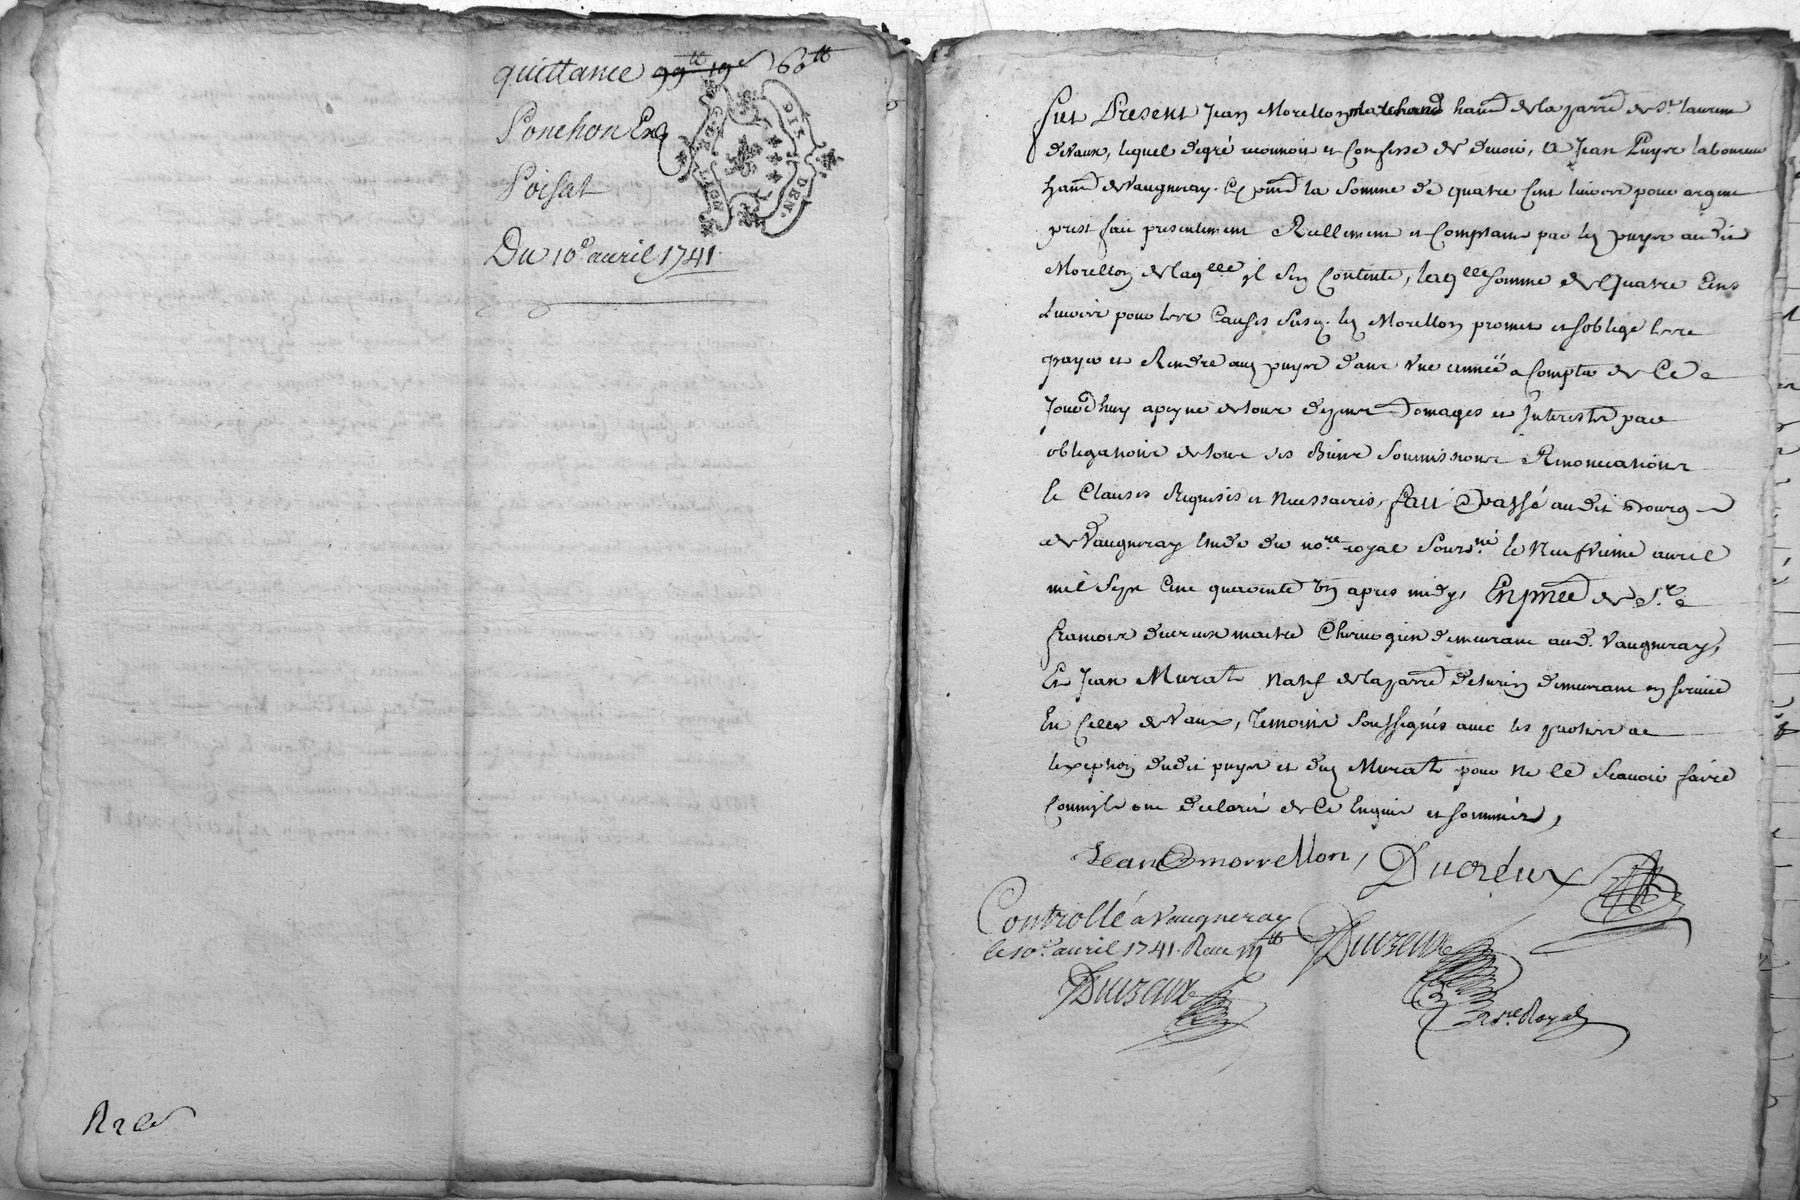 quittance 99tt 19s 60tt
Ponchon Exg
Poisat
Du 10e auril 1741.
GN. DE LION
DIX DEN.
R 2
fut Present Jean Morellon marchand hantd de la parre de St laurent
deuaux, lequel degré reconnoit et Confesse de deuoir, a Jean Puyre laboureur
hantd de Vaugneray. Cy pnt la Somme de quatre Cent liures pour argent
prest fait presentement Reellement et Comptant par led puyre audit
Morellon de laqelle il sen Contente, laqelle somme de Quatre Cens
Liures pour les Causes susd. led Morellon promet et soblige les
payer et Rendre aud puyre dans vne année a Compter de Ce
Jourdhuy apeyne de tous depens Domages et Interests par
obligations de tous ses Biens soumissions Renonciations
& Clauses Requises et necessaires, fait & passé audit Bourg
de Vaugneray Etude du nore royal sousné le neufvieme auril
mil sept Cent quarante vn apres midy, En pnce de Sr
francois ducreux maitre Chirurgien demeurant aud. Vaugneray,
Et Jean Murat natif de la parre demeurant en seruice
En Celle de Vaux, temoins soussignés auec les parties a
lexeption dudit puyre et dud Murat pour ne le scauoir faire
Comme ils ont declaré de Ce Enquis et sommés,
Jean morrellon, Ducreux
Controllé a Vaugneray
le 10e auril 1741. Recu
Ducreux
Ducreux
nre Royal